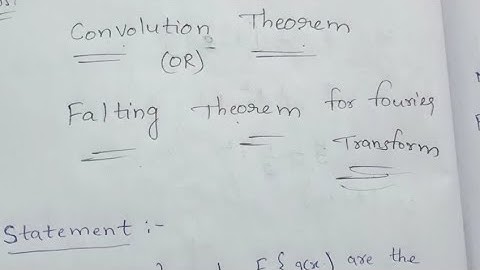 Convolution Theorem
(OR)
Falting Theorem for fourier
Transform
Statement :-
F{g(x) are the